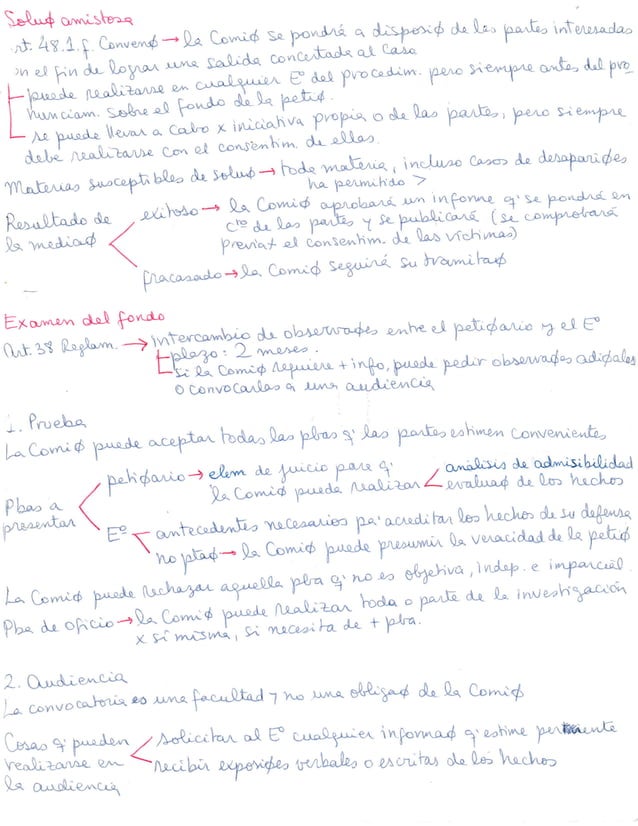 Soluø amistosa
rt. 48.1.f. Convenø → la Comiø se pondrá a disposiø de las partes interesadas
on el fin de lograr una salida concertada al caso
puede realizarse en cualquier Eº del procedim. pero siempre antes del pro_
nunciam. sobre el fondo de la petiø.
se puede llevar a cabo x iniciativa propia o de las partes, pero siempre
debe realizarse con el consentim. de ellas.
Materias susceptibles de soluø → toda materia, incluso casos de desapariøes
ha permitido >
Resultado de la mediaø
exitoso → la Comiø aprobará un informe q' se pondrá en
cto de las partes y se publicará (se comprobará
previa+ el consentim. de las víctimas)
fracasado → la Comiø seguirá su tramitaø
Examen del fondo
Art. 38 Reglam. → intercambio de observaøes entre el petiøario y el Eº
plazo: 2 meses.
si la Comiø requiere + info, puede pedir observaøes adiøales
o convocarlas a una audiencia
1. Prueba
La Comiø puede aceptar todas las pbas q' las partes estimen convenientes
Pbas a presentar
petiøario → elem de juicio para q'
la Comiø pueda realizar
análisis de admisibilidad
evaluaø de los hechos
Eº
antecedentes necesarios pa' acreditar los hechos de su defensa
no ptaø → la Comiø puede presumir la veracidad de la petiø
La Comiø puede rechazar aquella pba q' no es objetiva, indep. e imparcial.
Pba de oficio → la Comiø puede realizar toda o parte de la investigación
x sí misma, si necesita de + pba.
2. Audiencia
La convocatoria es una facultad y no una obligaø de la Comiø
Cosas q' pueden
realizarse en
la audiencia
solicitar al Eº cualquier informaø q' estime pertinente
recibir exposiøes verbales o escritas de los hechos